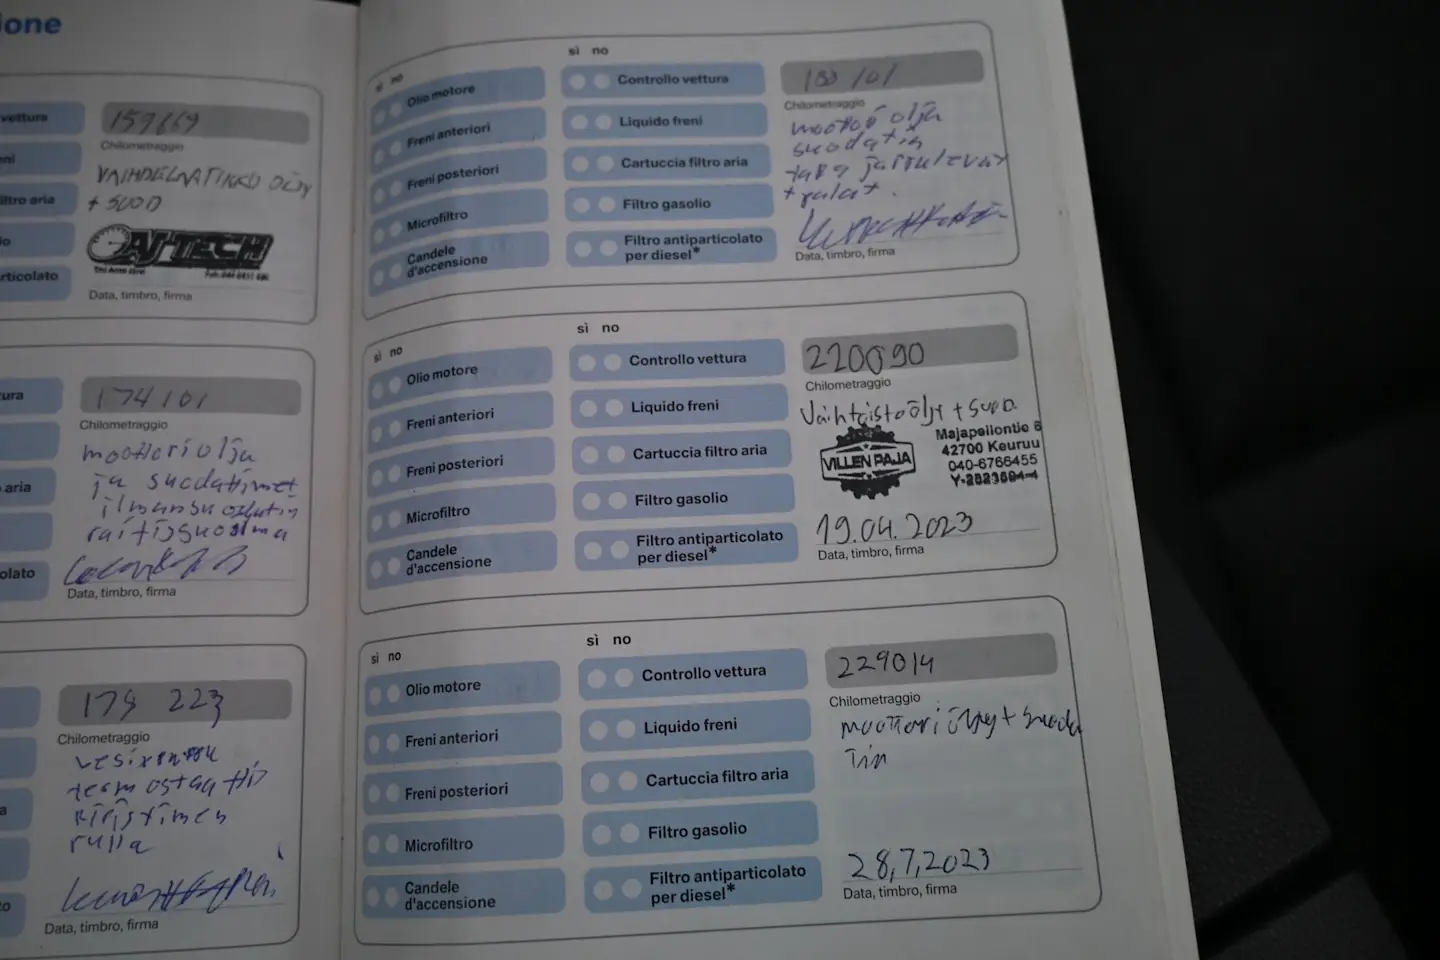 ione
vettura
eni
iltro aria
io
rticolato
159669
Chilometraggio
VAIHDELAATIKKO ÖLJY
+ SUOD
Data, timbro, firma
tura
aria
olato
174101
Chilometraggio
moottori olja
ja suodattimet
ilmansuodatin
raitisuodima
Data, timbro, firma
a
to
179 223
Chilometraggio
termostaatti
kiristimen
rulla
Data, timbro, firma
sì no
Olio motore
Freni anteriori
Freni posteriori
Microfiltro
Candele
d'accensione
sì no
Controllo vettura
Liquido freni
Cartuccia filtro aria
Filtro gasolio
Filtro antiparticolato
per diesel*
Chilometraggio
moottori olja
suodatin
taka jarrulevyt
+ palat.
Data, timbro, firma
sì no
Olio motore
Freni anteriori
Freni posteriori
Microfiltro
Candele
d'accensione
sì no
Controllo vettura
Liquido freni
Cartuccia filtro aria
Filtro gasolio
Filtro antiparticolato
per diesel*
220090
Chilometraggio
Vaihteistoöljy + suod.
VILLEN PAJA
Majapellontie 6
42700 Keuruu
040-6766455
Y-2823694-4
19.04.2023
Data, timbro, firma
sì no
Olio motore
Freni anteriori
Freni posteriori
Microfiltro
Candele
d'accensione
sì no
Controllo vettura
Liquido freni
Cartuccia filtro aria
Filtro gasolio
Filtro antiparticolato
per diesel*
229014
Chilometraggio
moottori öljy + suoda
Tin
28,7,2023
Data, timbro, firma